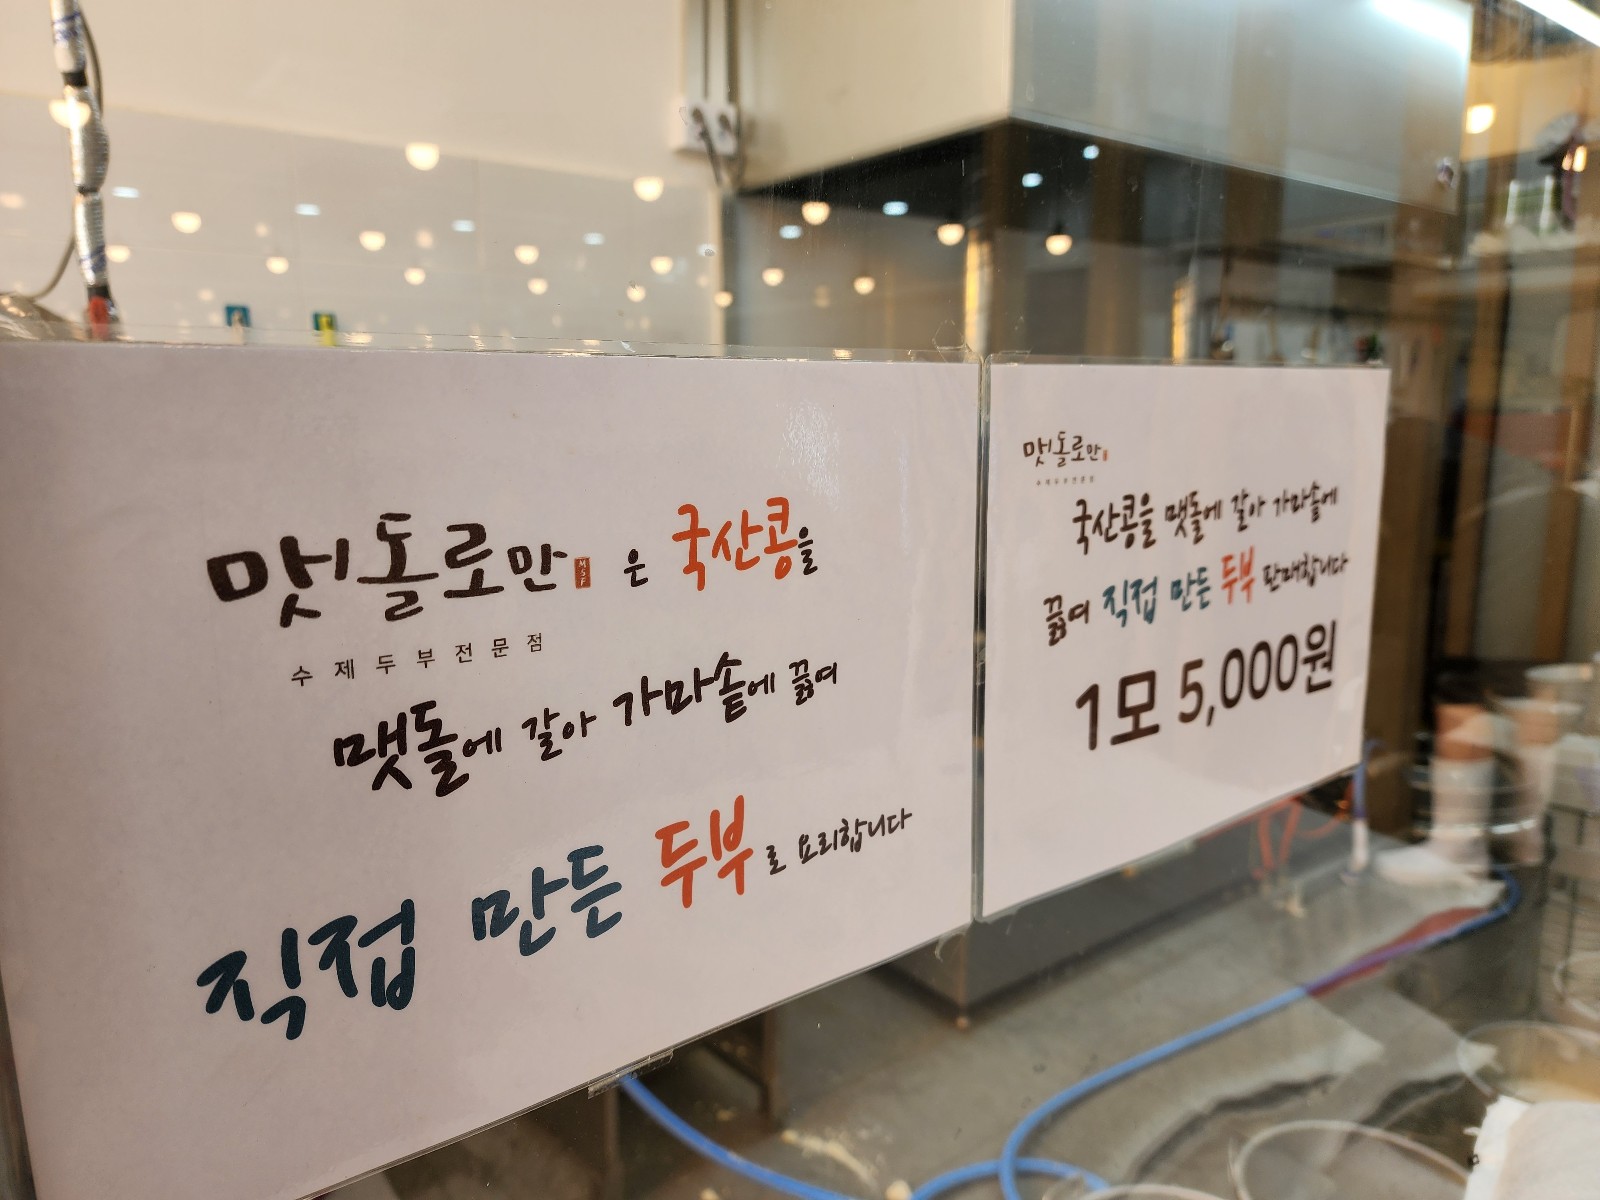 맷돌로만 MSF 은 국산콩을
수제두부전문점
맷돌에 갈아 가마솥에 끓여
직접 만든 두부로 요리합니다
맷돌로만
수제두부전문점
국산콩을 맷돌에 갈아 가마솥에
끓여 직접 만든 두부 판매합니다
1모 5,000원